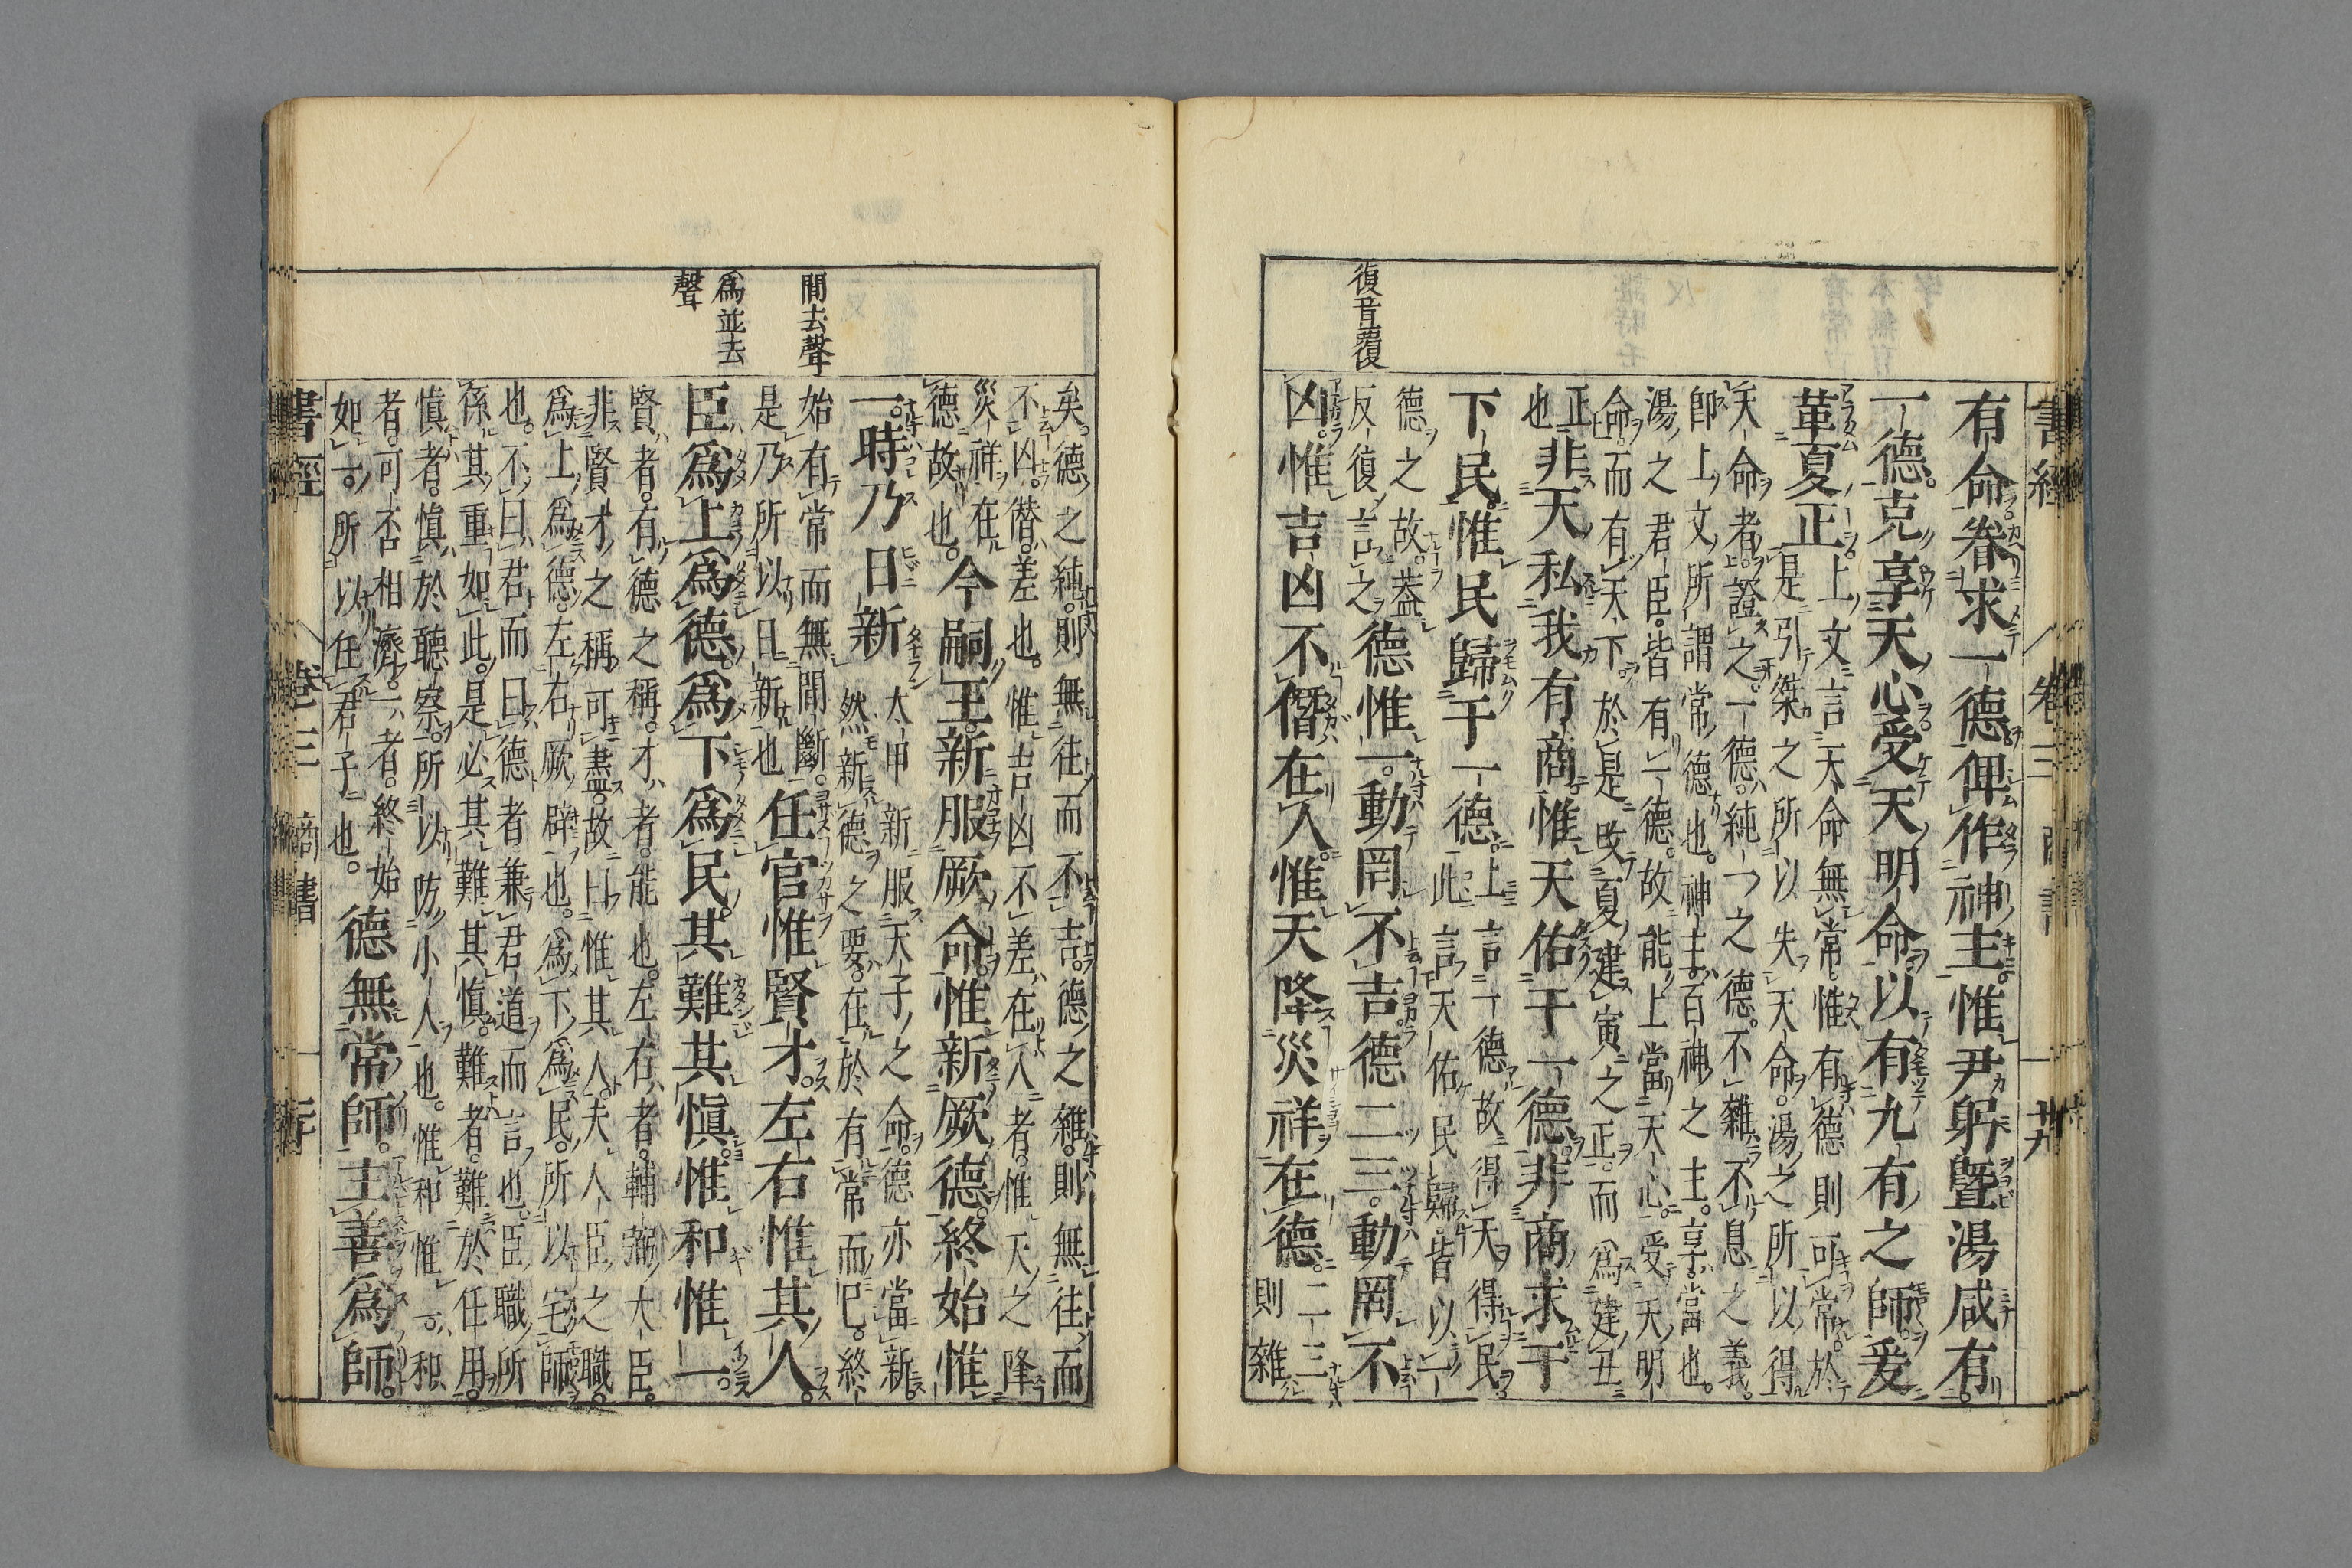 書經 卷三 商書 廿九
復音覆
有命。眷求一德。俾作神主。惟尹躬曁湯。咸有
一德。克享天心。受天明命。以有九有之師。爰
革夏正。
上文言天命無常。惟有德則可常。於
是引桀之所以失天命。湯之所以得
天命者。證之。一德。純一之德。不雜不息之義。
卽上文所謂常德也。神主。百神之主。享。當也。
湯之君臣。皆有一德。故能上當天心。受天明
命。而有天下。於是改夏建寅之正。而爲建丑
正
也
非天私我有商。惟天佑于一德。非商求于
下民。惟民歸于一德。
上言一德。故得天得民。
此言天佑民歸。皆以一
德之故。蓋
反復言之
德惟一。動罔不吉。德二三。動罔不
凶。惟吉凶不僭在人。惟天降災祥在德。
二三
則雜
間去聲
爲並去
聲
矣。德之純。則無往而不吉。德之雜。則無往而
不凶。僭。差也。惟吉凶不差在人者。惟天之降
災祥在
德故也。
今嗣王。新服厥命。惟新厥德。終始惟
一。時乃日新
太甲新服天子之命。德亦當新。
然新德之要。在於有常而已。終
始有常而無間斷。
是乃所以日新也
任官惟賢才。左右惟其人。
臣爲上爲德。爲下爲民。其難其愼。惟和惟一。
賢者。有德之稱。才者。能也。左右者。輔弼大臣。
非賢才之稱可盡。故曰惟其人。夫人臣之職。
爲上爲德。左右厥辟也。爲下爲民。所以宅師
也。不曰君而曰德者。兼君道而言也。臣職所
係。其重如此。是必其難其愼。難者。難於任用。
愼者。愼於聽察。所以防小人也。惟和惟一。和
者。可否相濟。一者。終始
如一。所以任君子也。
德無常師。主善爲師。
書經 卷三 商書